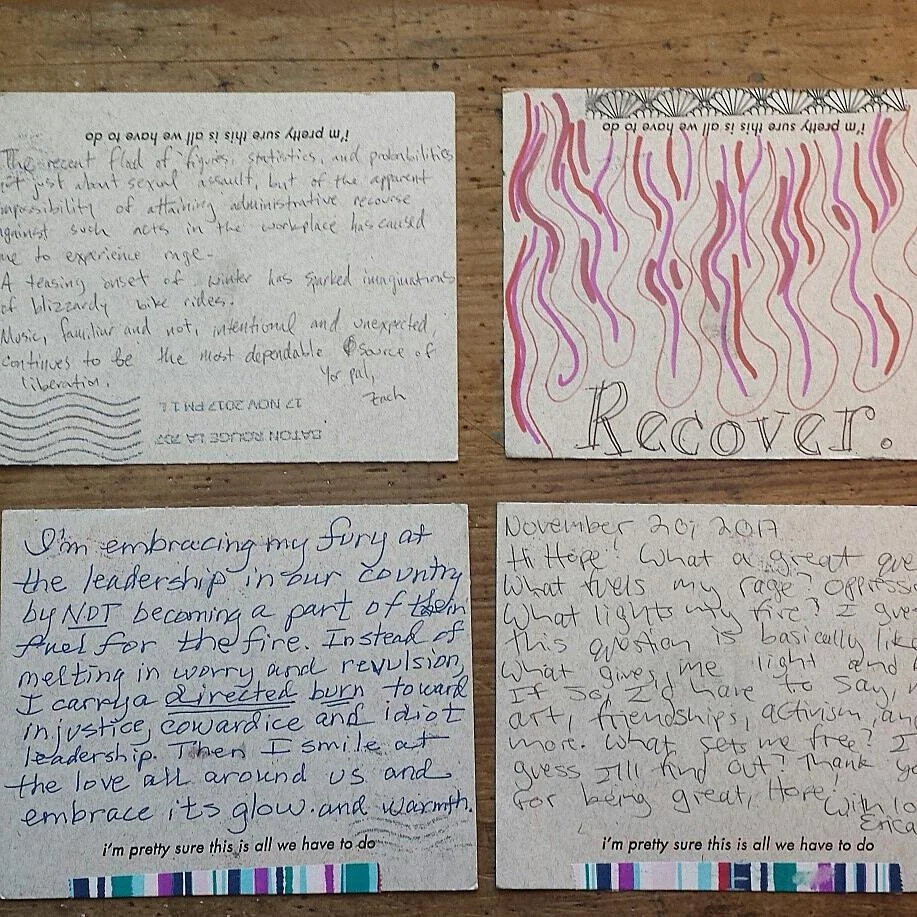 i'm pretty sure this is all we have to do
The recent flod of figures, statistics, and probabilities
not just about sexual assault, but of the apparent
impossibility of attaining administrative recourse
against such acts in the workplace has caused
me to experience rage.
A teasing onset of winter has sparked imaginations
of blizzardy bike rides.
Music, familiar and not, intentional and unexpected,
continues to be the most dependable source of
liberation.
Yor pal,
Zach
17 NOV 2017 PM 1 L
BATON ROUGE LA 707
i'm pretty sure this is all we have to do
Recover.
I'm embracing my fury at
the leadership in our country
by NOT becoming a part of their
fuel for the fire. Instead of
melting in worry and revulsion,
I carry a directed burn toward
injustice, cowardice and idiot
leadership. Then I smile at
the love all around us and
embrace its glow and warmth.
i'm pretty sure this is all we have to do
November 20, 2017
Hi Hope! What a great que
What fuels my rage? oppressi
What lights my fire? I gues
this question is basically like
What gives me light and
If so, I'd have to say,
art, friendships, activism, an
more. What sets me free? I
guess I'll find out? Thank yo
for being great, Hope.
With lo
Erica
i'm pretty sure this is all we have to do